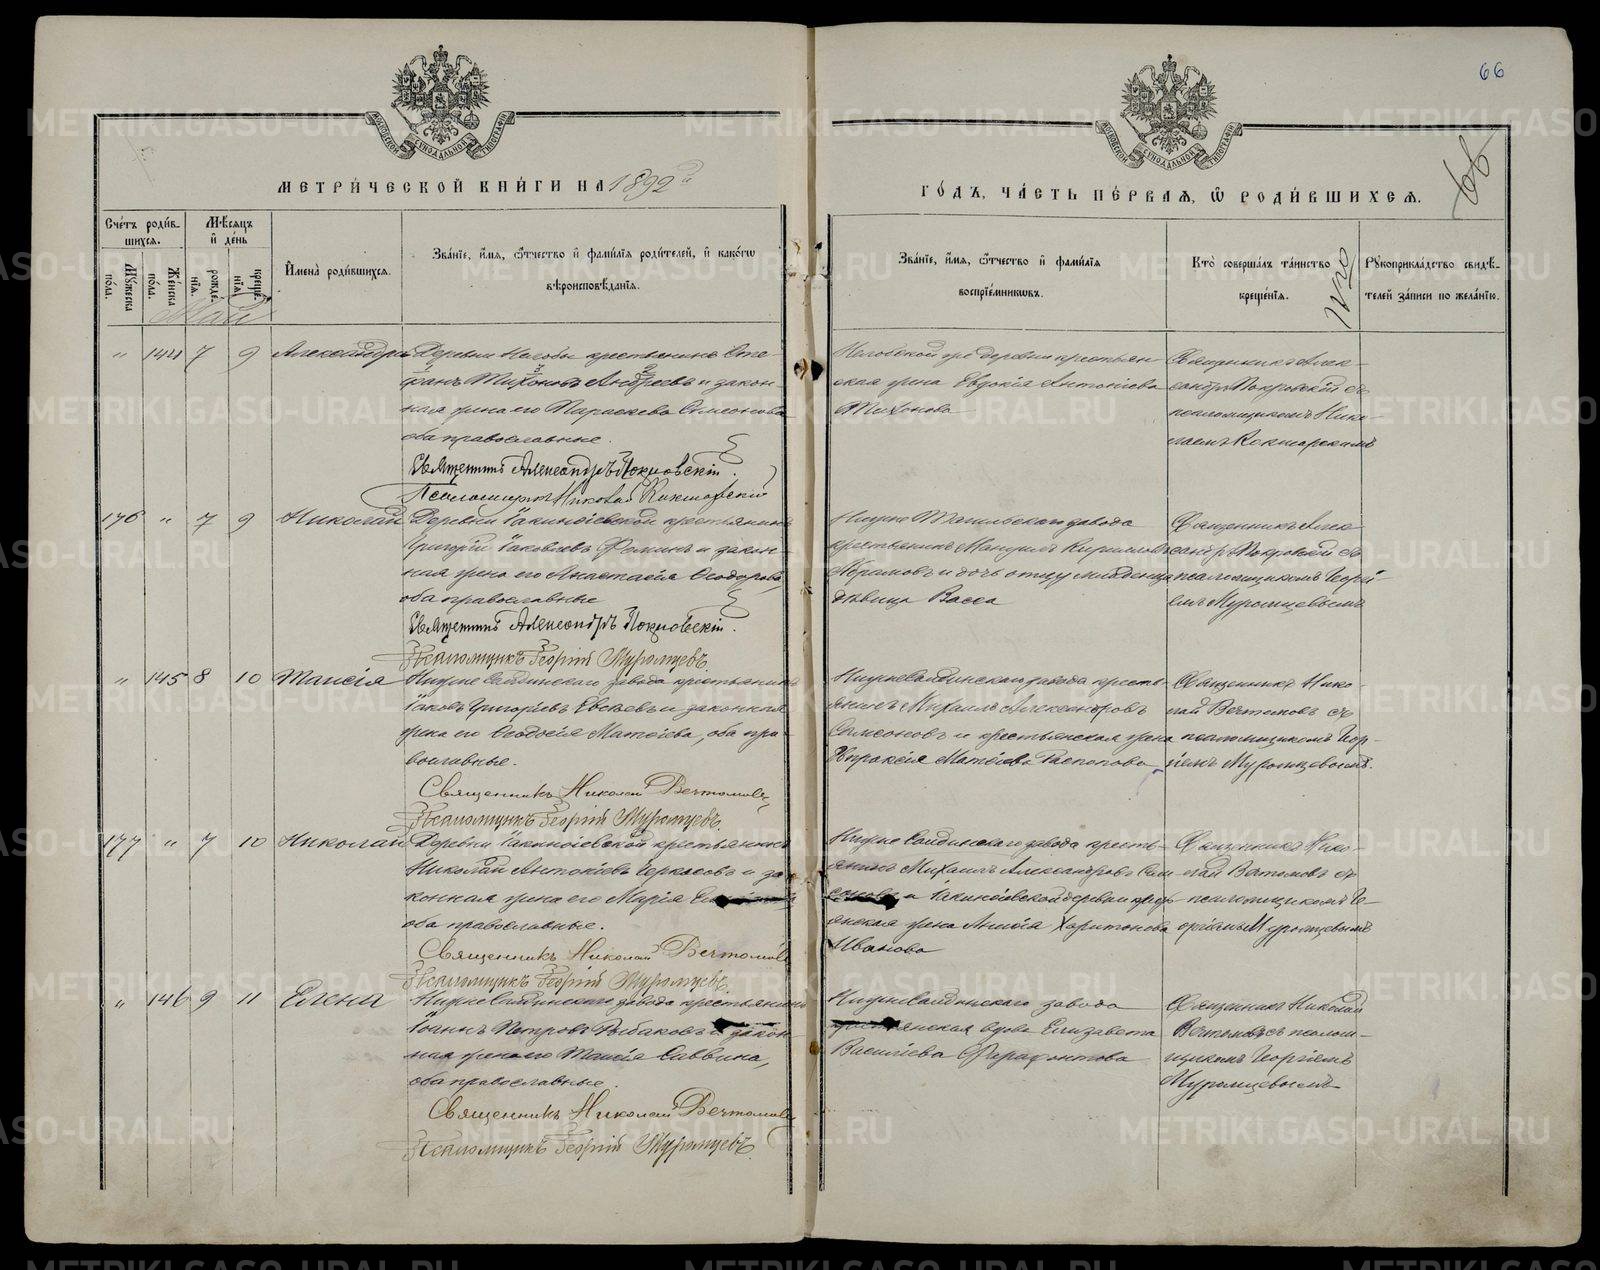 66
66
МЕТРИ́ЧЕСКОЙ КНИ́ГИ НА 1892й
ГО́ДЪ, ЧА́СТЬ ПЕ́РВАЯ, Ѡ РОДИ́ВШИХСЯ.
МОСКОВСКОЙ СѴНОДАЛЬНОЙ ТИПОГРАФІИ
МОСКОВСКОЙ СѴНОДАЛЬНОЙ ТИПОГРАФІИ
Сче́тъ роди́вшихся.
Мꙋжеска по́ла.
Же́нска по́ла.
Мѣ́сяцъ и҆ де́нь
рожде́нїя.
креще́нїя.
И҆мена̀ роди́вшихся.
Зва́нїе, и҆́мя, ѻ҆́тчество и҆ фами́лїя роди́телей, и҆ како́гѡ вѣроисповѣ́данїя.
Зва́нїе, и҆́мя, ѻ҆́тчество и҆ фами́лїя воспрїе́мникѡвъ.
Кто̀ соверша́лъ та́инство креще́нїя.
Рꙋкоприкла́дство свидѣ́телей за́писи по жела́нїю.
Май
" 144 7 9 Александра
Деревни Нелобы крестьянинъ Сте-
фанъ Тихоновъ Андреевъ и закон-
ная жена его Параскева Симеонова
оба православные.
Священникъ Александръ Покровскій.
Псаломщикъ Николай Кокшарскій
Нелобской же деревни крестьян-
ская жена Евдокія Антоніева
Тихонова
Священникъ Алек-
сандръ Покровскій съ
псаломщикомъ Нико-
лаемъ Кокшарскимъ
176 " 7 9 Николай
Деревни Іакинѳіевской крестьянинъ
Григорій Іаковлевъ Ѳоминъ и закон-
ная жена его Анастасія Ѳеодорова,
оба православные
Священникъ Александръ Покровскій.
Псаломщикъ Георгій Муромцевъ.
Нижне Тагильскаго завода
крестьянинъ Мануилъ Кирилловъ
Абрамовъ и дочь отцу младенца
дѣвица Васса
Священникъ Алек-
сандръ Покровскій съ
псаломщикомъ Георгі-
емъ Муромцевымъ
" 145 8 10 Таисія
Нижне Салдинскаго завода крестьянинъ
Іаковъ Григоріевъ Евсѣевъ и законная
жена его Ѳеодосія Матѳіева, оба пра-
вославные.
Священникъ Николай Вечтомовъ
Псаломщикъ Георгій Муромцевъ.
Нижнесалдинскаго завода кресть-
янинъ Михаилъ Александровъ
Самсоновъ и крестьянская жена
Евпраксія Матѳіева Распопова
Священникъ Нико-
лай Вечтомовъ съ
псаломщикомъ Геор-
гіемъ Муромцевымъ.
177 " 7 10 Николай
Деревни Іакинѳіевской крестьянинъ
Николай Антоніевъ Черкасовъ и за-
конная жена его Марія
оба православные.
Священникъ Николай Вечтомовъ
Псаломщикъ Георгій Муромцевъ.
Нижне Салдинскаго завода кресть-
янинъ Михаилъ Александровъ Сам-
соновъ и Іакинѳіевской деревни кресть-
янская жена Анисія Харитонова
Иванова
Священникъ Нико-
лай Вечтомовъ съ
псаломщикомъ Ге-
оргіемъ Муромцевымъ
" 146 9 11 Елена
Нижне Салдинскаго завода крестьянинъ
Іоаннъ Петровъ Рыбаковъ и закон-
ная жена его Таисія Саввина,
оба православные.
Священникъ Николай Вечтомовъ
Псаломщикъ Георгій Муромцевъ.
Нижнесалдинскаго завода
крестьянская вдова Елизавета
Василіева Ферафонтова
Священникъ Николай
Вечтомовъ съ псалом-
щикомъ Георгіемъ
Муромцевымъ
METRIKI.GASO-URAL.RU